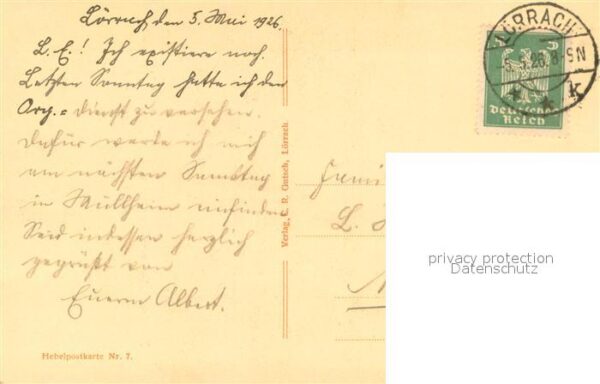 Lörrach, den 5. Mai 1926.
L. E.! Ich existiere noch.
Letzten Sonntag hatte ich den
Org.= dienst zu versehen.
Dafür werde ich mich
am nächsten Samstag
in Müllheim einfinden.
Seid indessen herzlich
gegrüßt von
Euerm Albert.
Hebelpostkarte Nr. 7.
Verlag C. R. Gutsch, Lörrach
LÖRRACH
8-9N
* * k
5
Deutsches
Reich
Fami
L.
privacy protection
Datenschutz